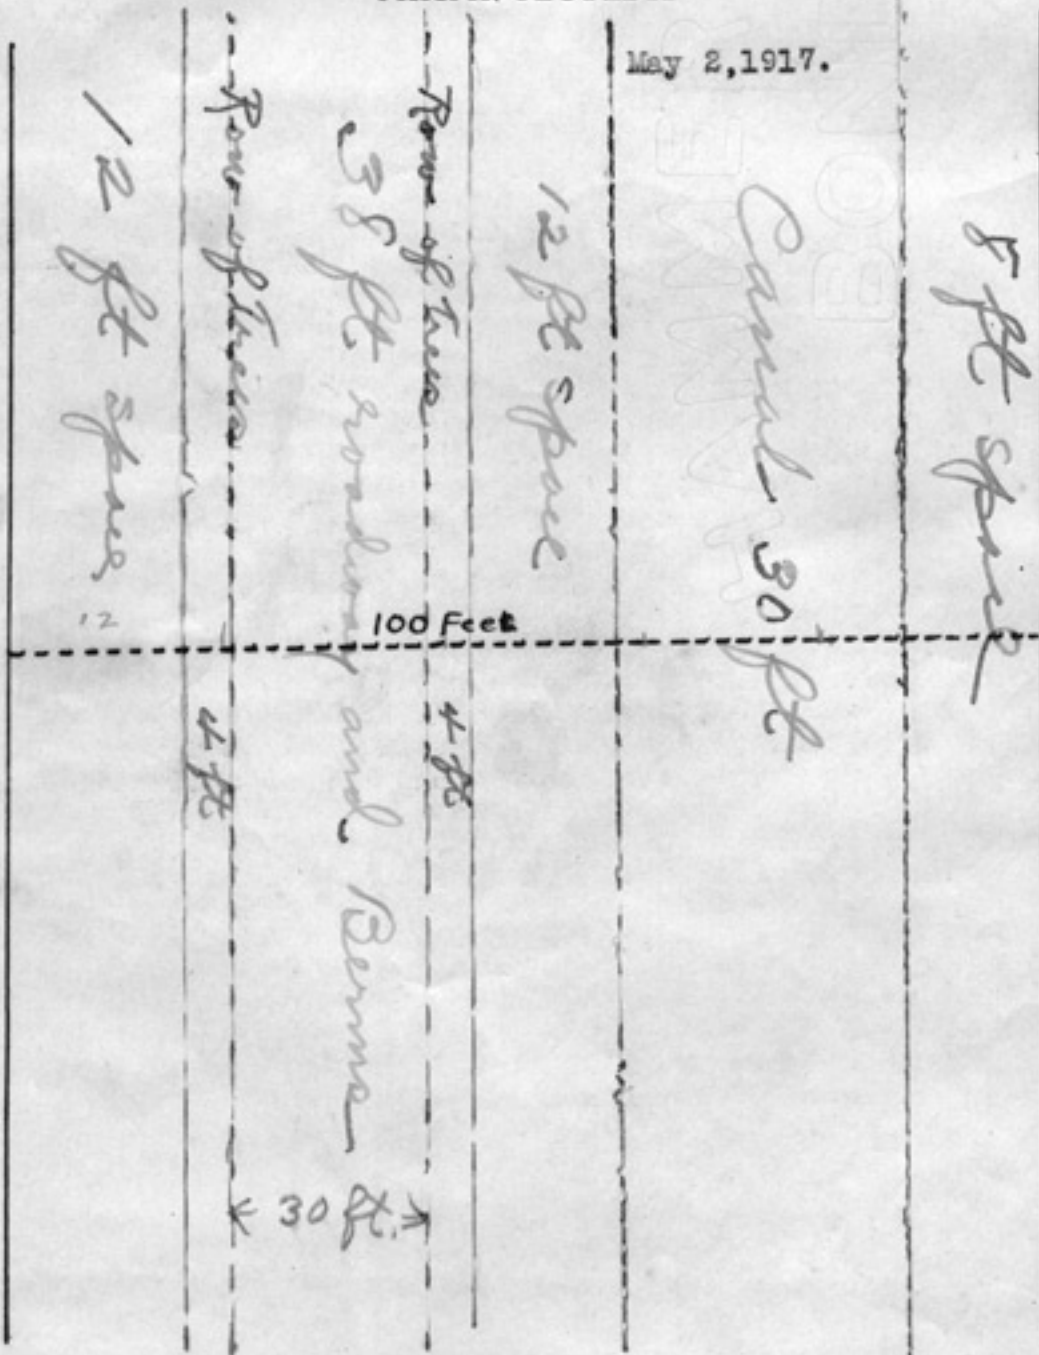 May 2,1917.
8 ft space
Canal 30 ft
12 ft space
Row of Trees
38 ft roadway and Berms
Row of Trees
12 ft space
12
100 Feet
4 ft
4 ft
30 ft.